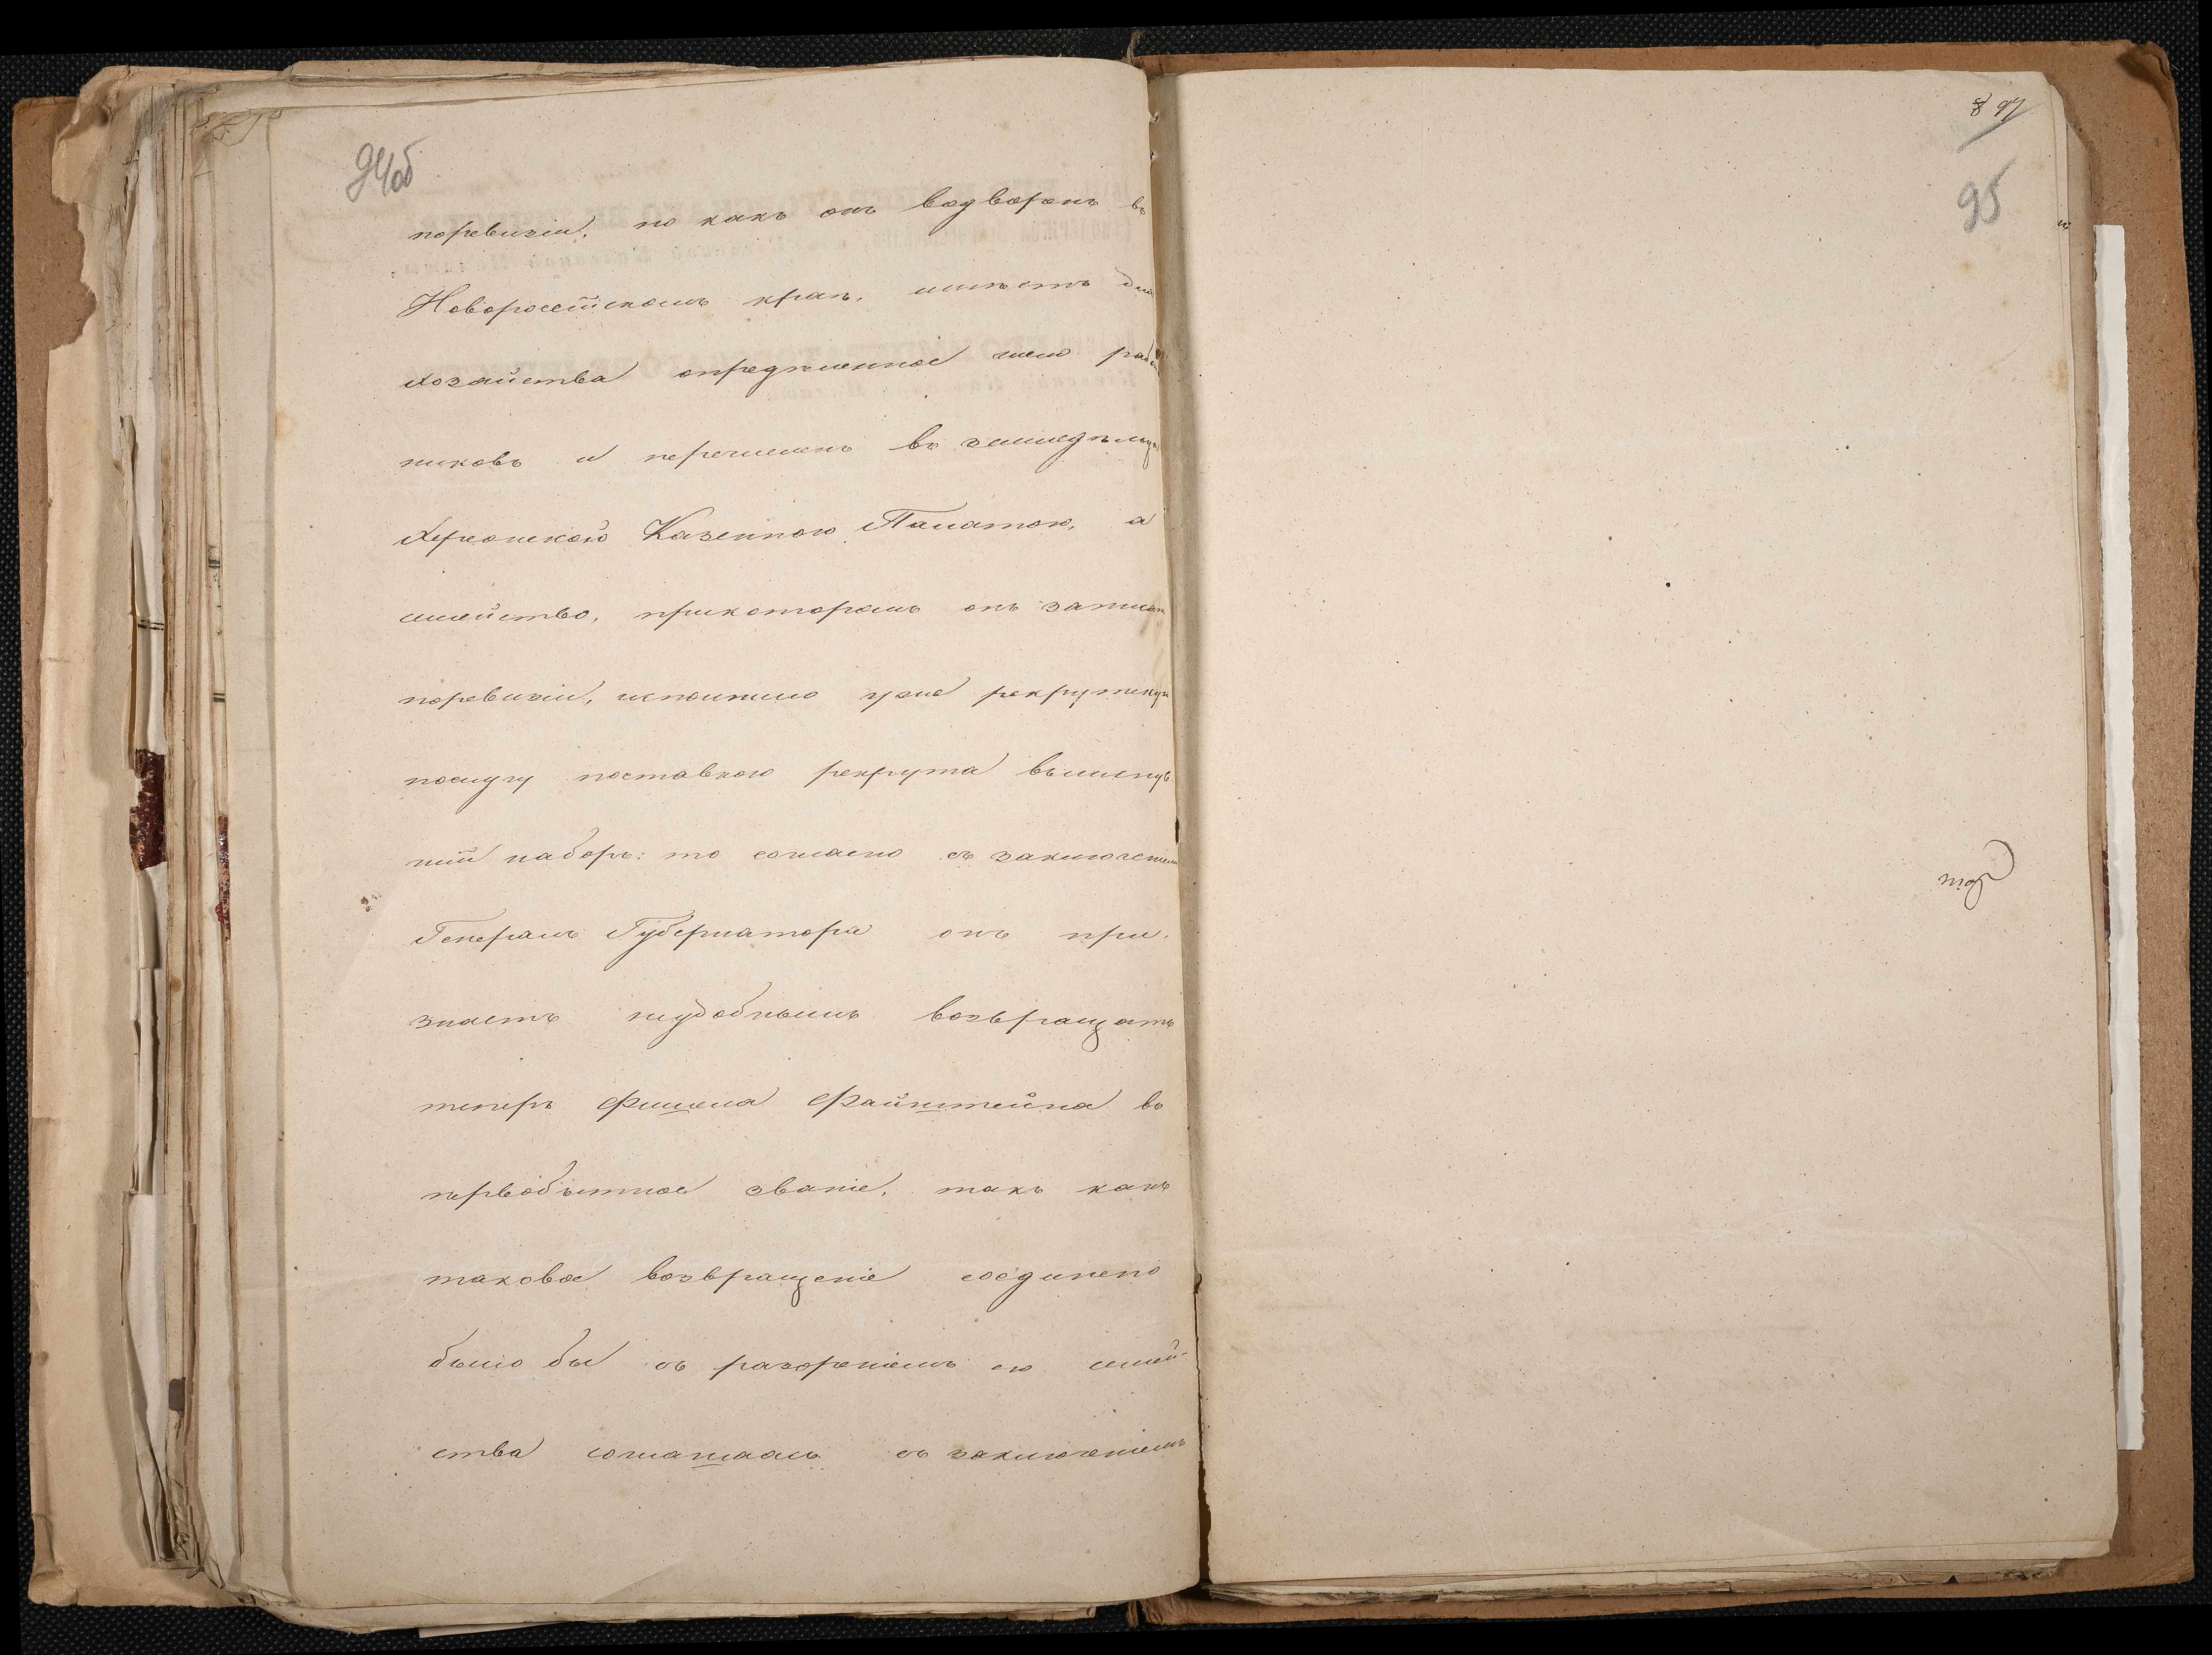 94об
поревизіи, но какъ онъ водворенъ въ
Новоросейскомъ краѣ, имѣетъ для
хозяйства опредѣленное число работ
никовъ и перечисленъ въ земледѣльцы
Херсонскою Казенною Палатою, а
семейство, прикоторомъ онъ записан
поревизіи, исполнило уже рекрутскую
послугу поставкою рекрута вминув
шій наборъ: то согласно съ заключеніем
Генералъ Губернатора онъ при.
знаетъ неудобнымъ возвращать
теперь Фишеля Файнштейна въ
первобытное званіе, такъ какъ
таковое возвращеніе соединено
было бы съ разореніемъ его семей-
ства соглашаясь съ заключеніемъ
8 97
95